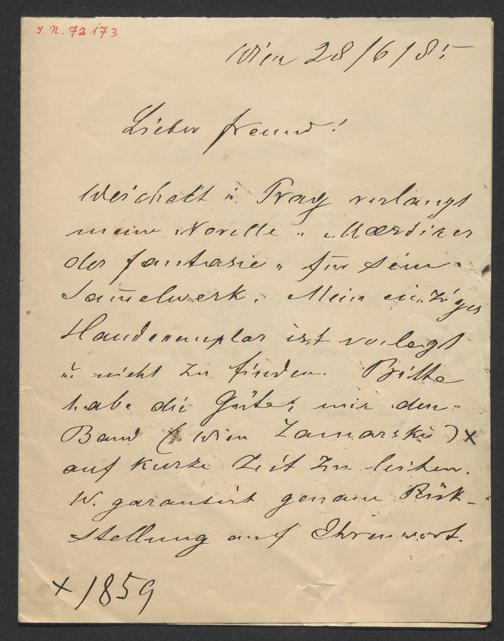 I. N. 72173
Wien 28/6/85
Lieber Freund!
Weichelt in Prag verlangt
meine Novelle "Märtirer
der Fantasie" für sein
Sam̄elwerk. Mein einziges
Handexemplar ist verlegt
u. nicht zu finden. Bitte
habe die Güte, mir den
Band (Wien Zamarski) x
auf kurze Zeit zu leihen.
W. garantirt genaue Rük-
stellung auf Ehrenwort.
x 1859